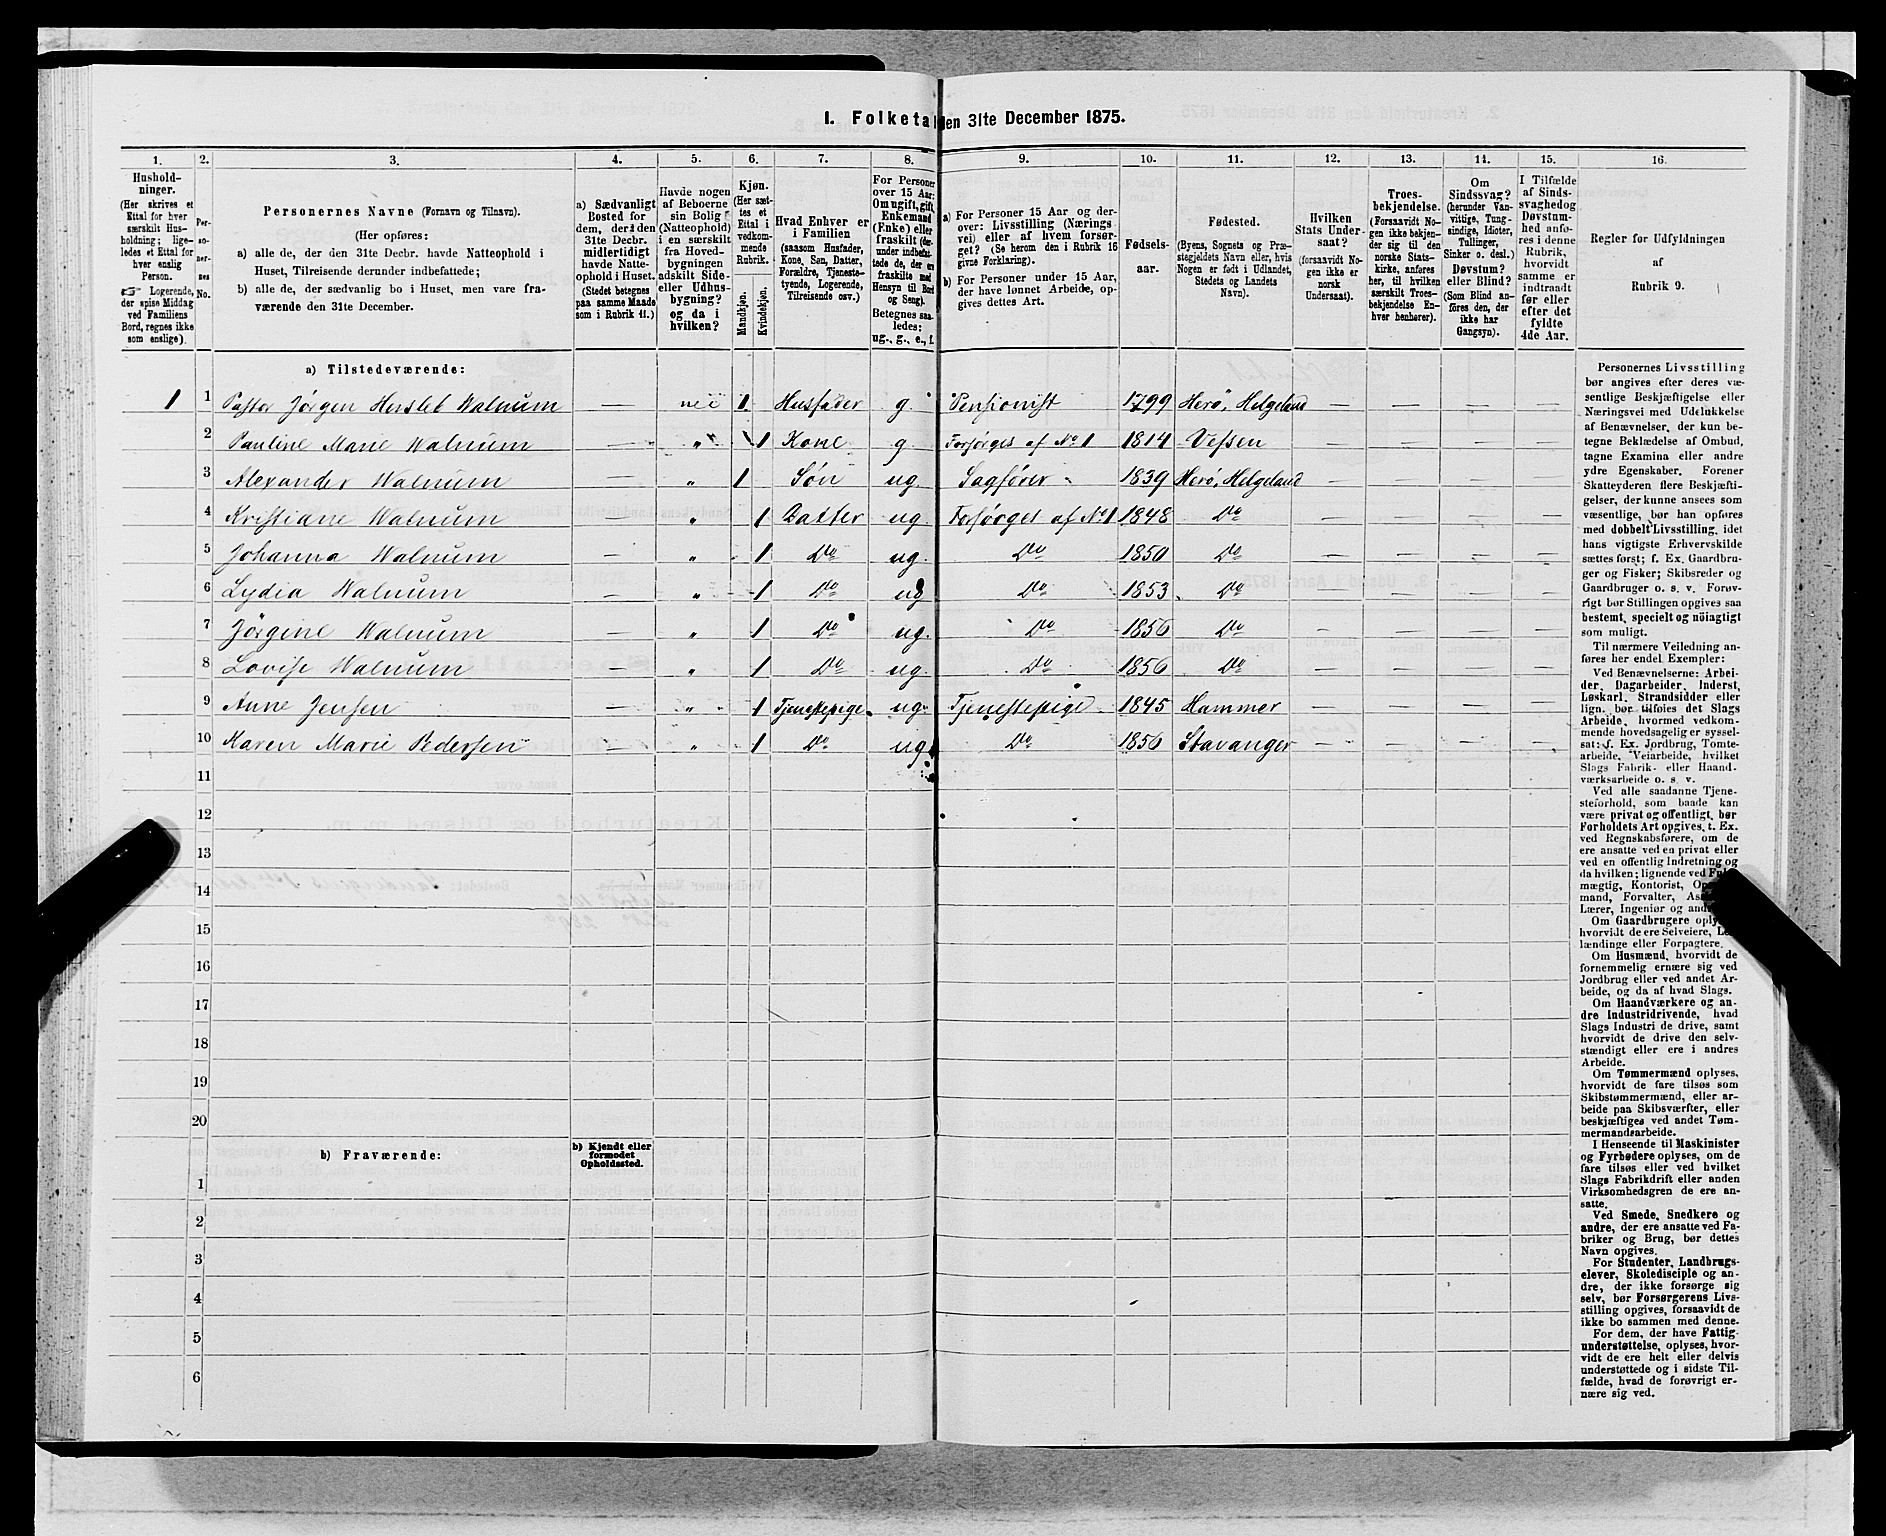 I. Folketal den 31te December 1875.
1. 2. 3. 4. 5. 6. 7. 8. 9. 10. 11. 12. 13. 14. 15. 16.
Hushold-
ninger.
(Her skrives et
Ettal for hver
særskilt Hus-
holdning; lige-
ledes et Ettal for
hver enslig
Person.
☞ Logerende,
der spise Middag
ved Familiens
Bord, regnes ikke
som enslige).
Per-
so-
ner-
nes
No.
Personernes Navne (Fornavn og Tilnavn).
(Her opføres:
a) alle de, der den 31te Decbr. havde Natteophold i
Huset, Tilreisende derunder indbefattede;
b) alle de, der sædvanlig bo i Huset, men vare fra-
værende den 31te December.
a) Sædvanligt
Bosted for
dem, der den
31te Decbr.
midlertidigt
havde Natte-
ophold i Huset.
(Stedet betegnes
paa samme Maade
som i Rubrik 11.)
Havde nogen
af Beboerne
sin Bolig
(Natteophold)
i en særskilt
fra Hoved-
bygningen
adskilt Side-
eller Udhus-
bygning?
og da i
hvilken?
Kjøn.
(Her sæt-
tes et
Ettal i
vedkom-
mende
Rubrik.
Mandkjøn.
Kvindekjøn.
Hvad Enhver er
i Familien
(saasom Husfader,
Kone, Søn, Datter,
Forældre, Tjeneste-
tyende, Logerende,
Tilreisende osv.)
For Personer
over 15 Aar:
Om ugift, gift,
Enkemand
(Enke) eller
fraskilt (der-
under indbefat-
tede de, der ere
fraskilte med
Hensyn til Bord
og Seng).
Betegnes saa-
ledes:
ug., g., e., f.
a) For Personer 15 Aar og der-
over: Livsstilling (Nærings-
vei) eller af hvem forsør-
get? (Se herom den i Rubrik 16
givne Forklaring).
b) For Personer under 15 Aar,
der have lønnet Arbeide, op-
gives dettes Art.
Fødsels-
aar.
Fødested.
(Byens, Sognets og Præ-
stegjeldets Navn eller, hvis
Nogen er født i Udlandet,
Stedets og Landets
Navn).
Hvilken
Stats Under-
saat?
(forsaavidt No-
gen ikke er
norsk
Undersaat).
Troes-
bekjendelse.
(Forsaavidt No-
gen ikke bekjen-
der sig til den
norske Stats-
kirke, anføres
her, til hvilken
særskilt Troes-
bekjendelse En-
hver henhører).
Om
Sindssvag?
(herunder Van-
vittige, Tung-
sindige, Idioter,
Tullinger,
Sinker o. desl.)
Døvstum?
eller Blind?
(Som Blind an-
føres den, der
ikke har
Gangsyn).
I Tilfælde
af Sinds-
svaghed og
Døvstum-
hed anfø-
res i denne
Rubrik,
hvorvidt
samme er
indtraadt
før eller
efter det
fyldte
4de Aar.
Regler for Udfyldningen
af
Rubrik 9.
a) Tilstedeværende:
1 1 Pastor Jørgen Herslet Walnum — nei 1 Husfader g. Pensionist 1799 Herø, Helgeland — — — —
2 Pauline Marie Walnum — „ 1 Kone g. Forsørges af No 1 1814 Vefsen — — — —
3 Alexander Walnum — „ 1 Søn ug. Sagfører 1839 Herø, Helgeland — — — —
4 Kristiane Walnum — „ 1 Datter ug. Forsørges af No 1 1848 Do — — — —
5 Johanna Walnum — „ 1 Do ug. Do 1850 Do — — — —
6 Lydia Walnum — „ 1 Do ug Do 1853 Do — — — —
7 Jørgine Walnum — „ 1 Do ug. Do 1856 Do — — — —
8 Lovise Walnum — „ 1 Do ug. Do 1856 Do — — — —
9 Anne Jensen — „ 1 Tjenestepige ug. Tjenestepige 1845 Hammer — — — —
10 Karen Marie Pedersen — „ 1 Do ug. Do 1856 Stavanger — — — —
11
12
13
14
15
16
17
18
19
20
b) Fraværende:
b) Kjendt eller
formodet
Opholdssted.
1
2
3
4
5
6
Personernes Livsstilling
bør angives efter deres væ-
sentlige Beskjæftigelse eller
Næringsvei med Udelukkelse
af Benævnelser, der kun be-
tegne Beklædelse af Ombud,
tagne Examina eller andre
ydre Egenskaber. Forener
Skatteyderen flere Beskjæfti-
gelser, der kunne ansees som
væsentlige, bør han opføres
med dobbelt Livsstilling, idet
hans vigtigste Erhvervskilde
sættes først; f. Ex. Gaardbru-
ger og Fisker; Skibsreder og
Gaardbruger o. s. v. Forøv-
rigt bør Stillingen opgives saa
bestemt, specielt og nöiagtigt
som muligt.
Til nærmere Veiledning an-
føres her endel Exempler:
Ved Benævnelserne: Arbei-
der, Dagarbeider, Inderst,
Løskarl, Strandsidder eller
lign. bør tilføies det Slags
Arbeide, hvormed vedkom-
mende hovedsagelig er syssel-
sat; f. Ex. Jordbrug, Tomte-
arbeide, Veiarbeide, hvilket
Slags Fabrik- eller Haand-
værksarbeide o. s. v.
Ved alle saadanne Tjene-
steforhold, som baade kan
være privat og offentligt, bør
Forholdets Art opgives, t. Ex.
ved Regnskabsførere, om de
ere ansatte ved en privat eller
ved en offentlig Indretning og
da hvilken; lignende ved
mægtig, Kontorist,
mand, Forvalter,
Lærer, Ingeniør og
Om Gaardbrugere
hvorvidt de ere Selveiere,
lændinge eller Forpagtere.
Om Husmænd, hvorvidt de
fornemmelig ernære sig ved
Jordbrug eller ved andet Ar-
beide, og da af hvad Slags.
Om Haandværkere og an-
dre Industridrivende, hvad
Slags Industri de drive, samt
hvorvidt de drive den selv-
stændigt eller ere i andres
Arbeide.
Om Tømmermænd oplyses,
hvorvidt de fare tilsøs som
Skibstømmermænd, eller ar-
beide paa Skibsværfter, eller
beskjæftiges ved andet Tøm-
mermandsarbeide.
I Henseende til Maskinister
og Fyrbødere oplyses, om de
fare tilsøs eller ved hvilket
Slags Fabrikdrift eller anden
Virksomhedsgren de ere an-
satte.
Ved Smede, Snedkere og
andre, der ere ansatte ved Fa-
briker og Brug, bør dettes
Navn opgives.
For Studenter, Landbrugs-
elever, Skoledisciple og an-
dre, der ikke forsørge sig
selv, bør Forsørgerens Livs-
stilling opgives, forsaavidt de
ikke bo sammen med denne.
For dem, der have Fattig-
understøttelse, oplyses, hvor-
vidt de ere helt eller delvis
understøttede og i sidste Til-
fælde, hvad de forøvrigt er-
nære sig ved.